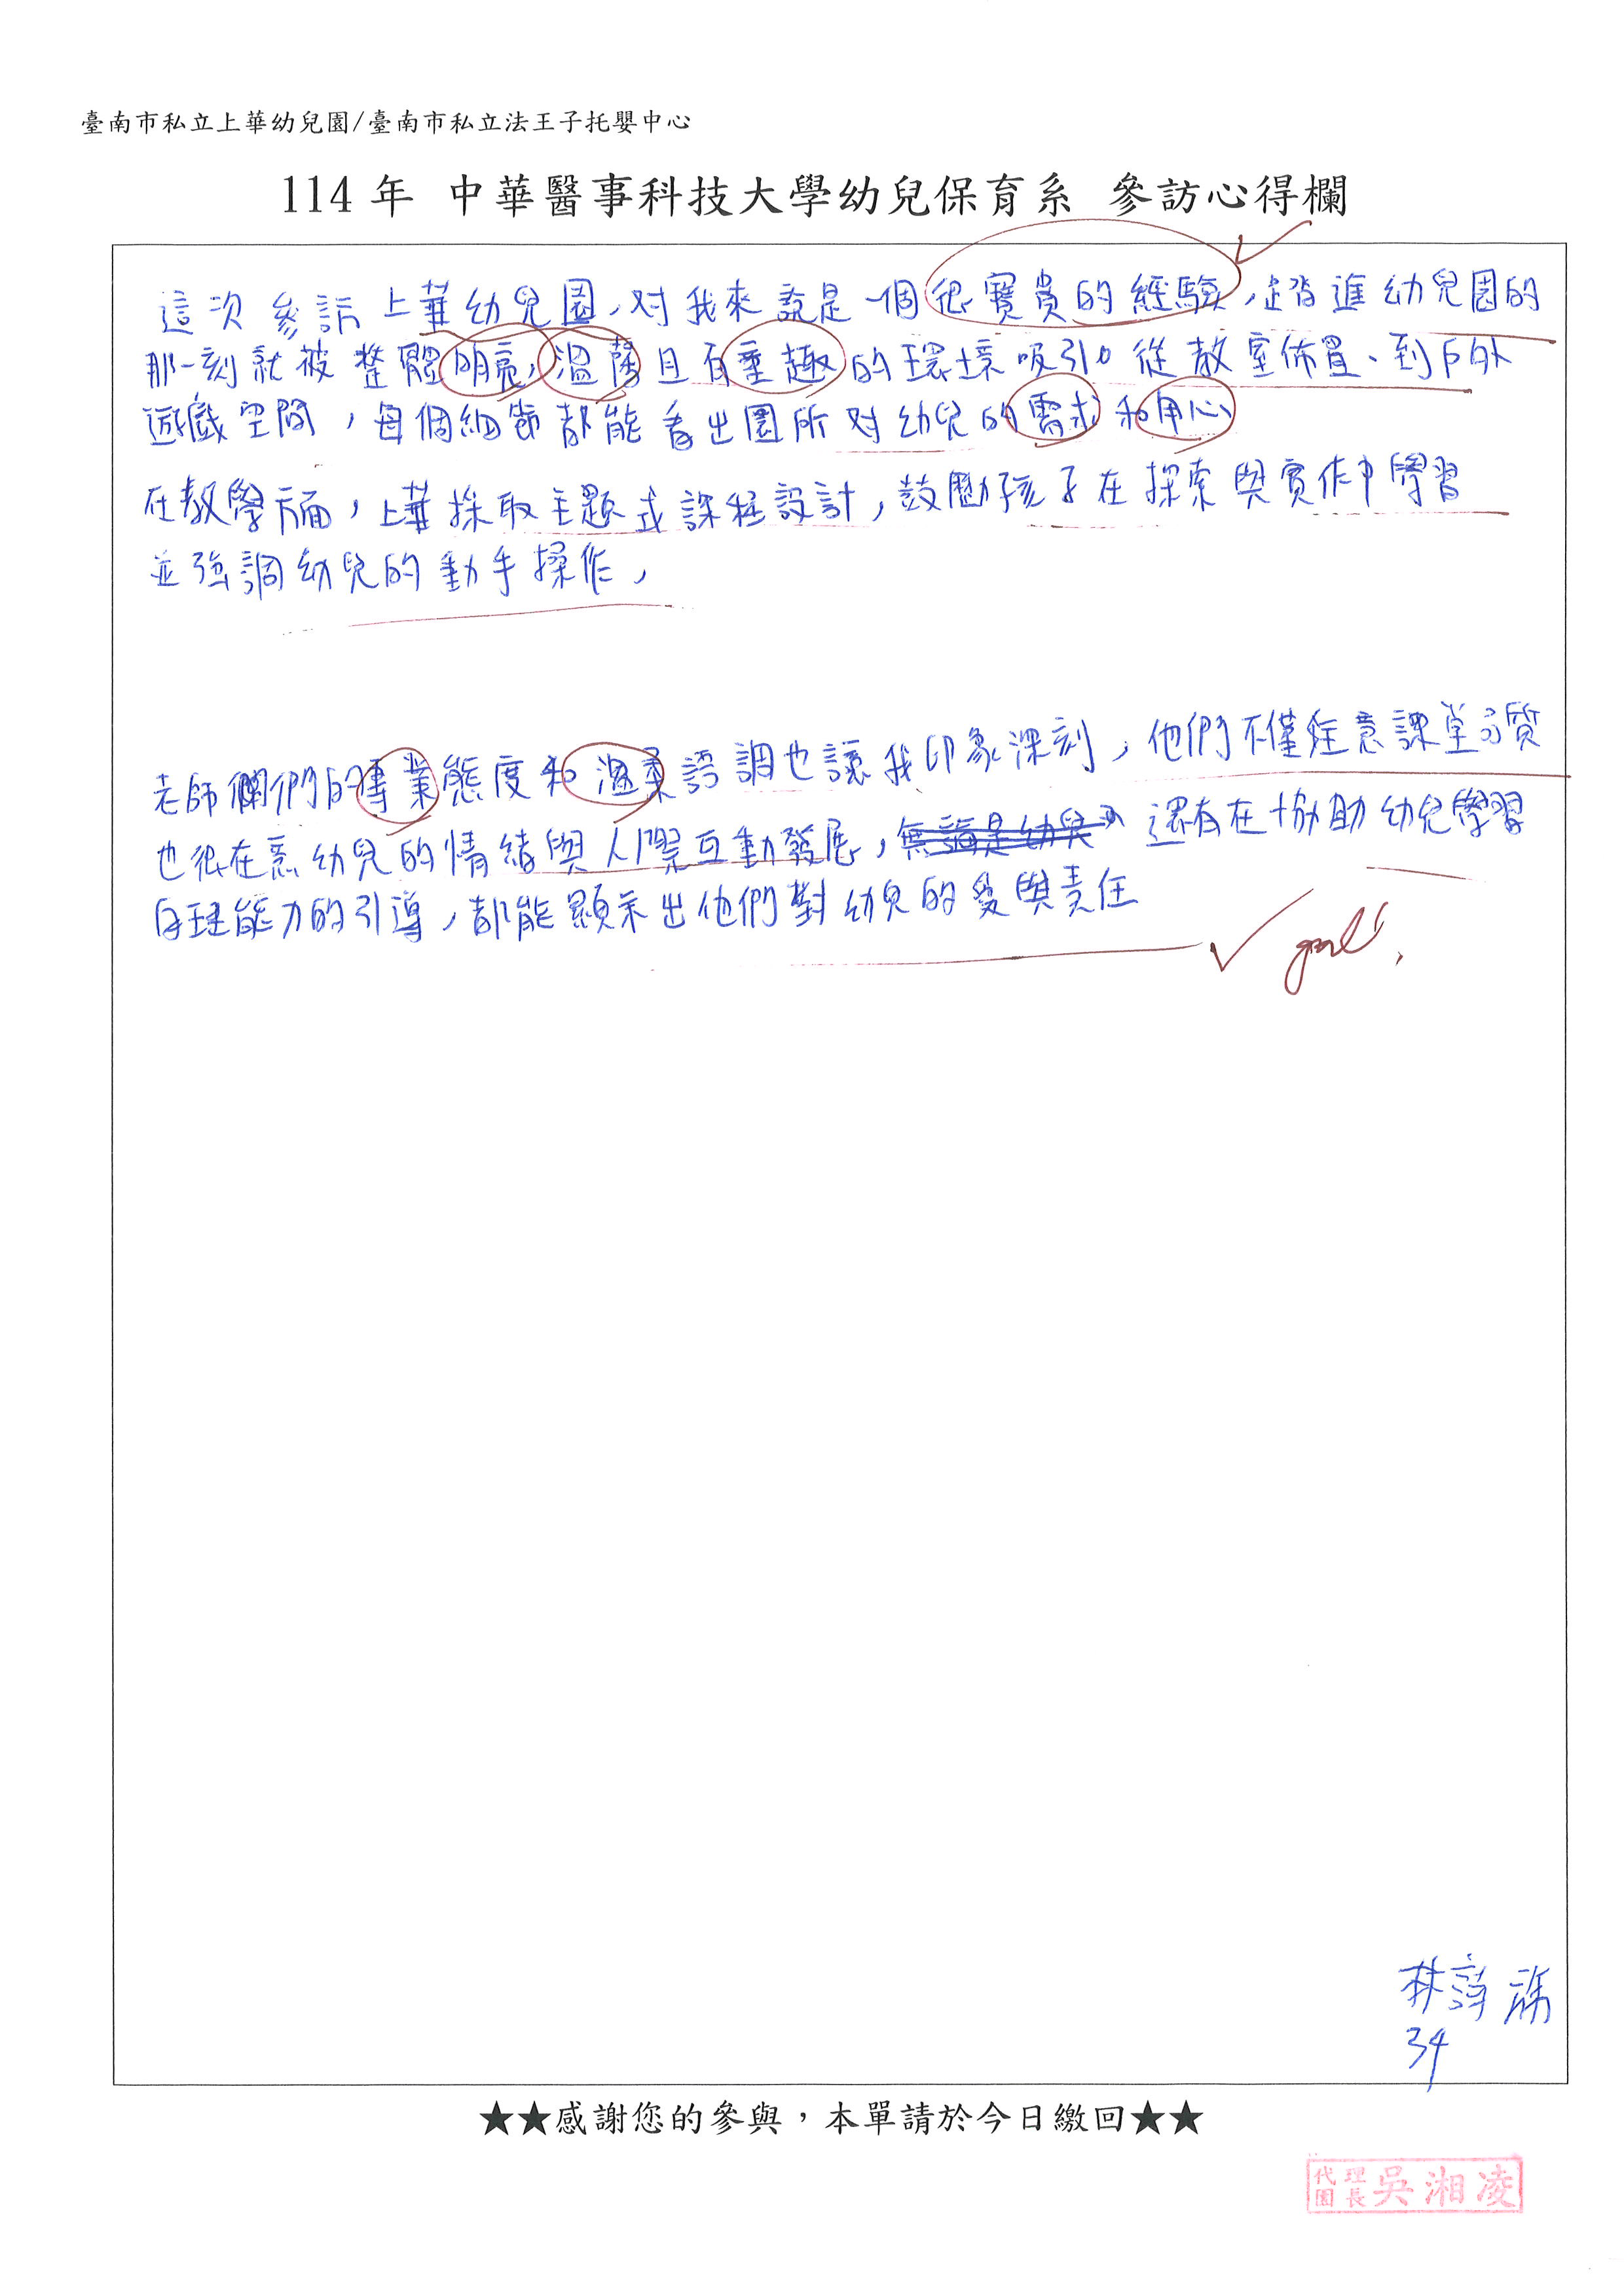 臺南市私立上華幼兒園/臺南市私立法王子托嬰中心
114 年 中華醫事科技大學幼兒保育系 參訪心得欄
這次參訪上華幼兒園,对我來說是一個很寶貴的經驗,踏進幼兒園的
那一刻就被整體明亮,溫馨且有童趣的環境吸引。從教室佈置、到戶外
遊戲空間,每個細節都能看出園所对幼兒的需求和用心
在教學方面,上華採取主題式課程設計,鼓勵孩子在探索與實作中學習
並強調幼兒的動手操作,
老師們的專業態度和溫柔語調也讓我印象深刻,他們不僅注意課堂品質
也很在意幼兒的情緒與人際互動發展,無論是幼兒 還有在協助幼兒學習
自理能力的引導,都能顯示出他們對幼兒的愛與責任
good!
林
34
★★感謝您的參與,本單請於今日繳回★★
代理園長 吳湘凌